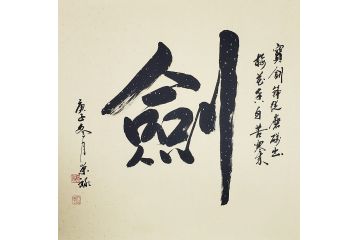 寶劍鋒從磨礪出
梅花香自苦寒來
劍
庚子冬月